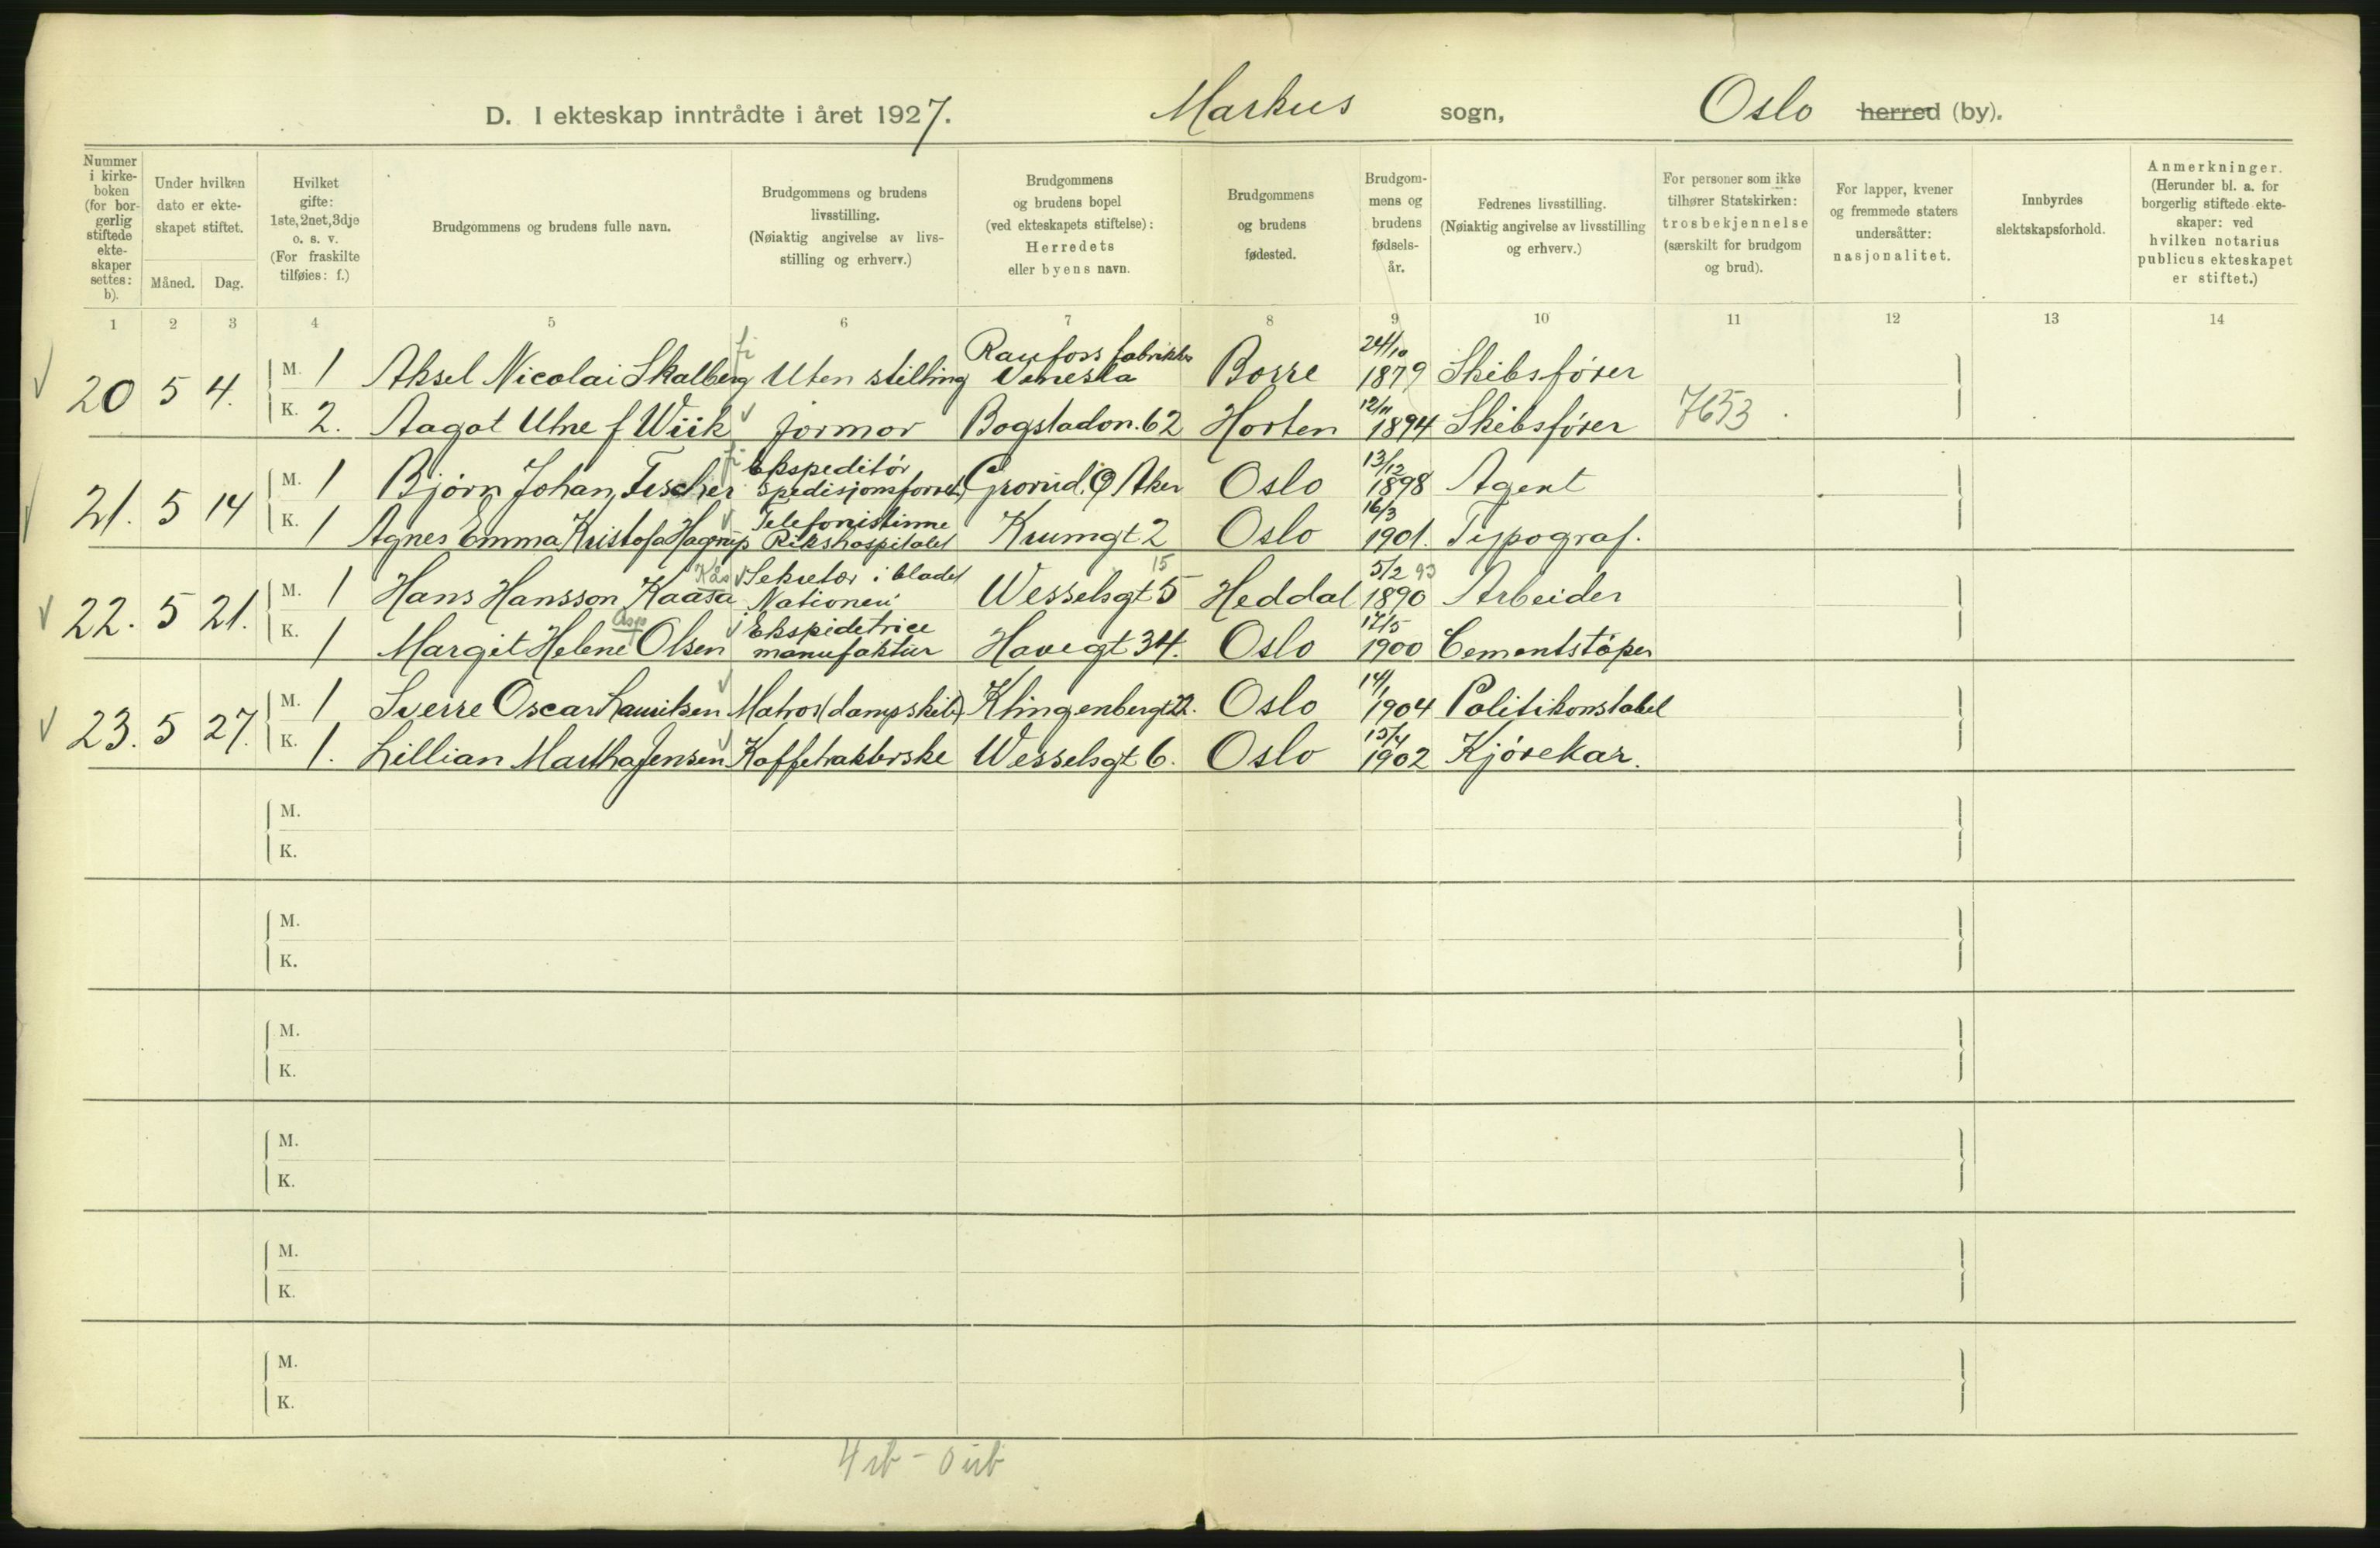 D. I ekteskap inntrådte i året 1927. Markus sogn, Oslo herred (by).
Nummer i kirke- boken (for bor- gerlig stiftede ekte- skaper settes: b).
Under hvilken dato er ekte- skapet stiftet.
Måned. Dag.
Hvilket gifte: 1ste, 2net, 3dje o. s. v. (For fraskilte tilføies: f.)
Brudgommens og brudens fulle navn.
Brudgommens og brudens livsstilling. (Nøiaktig angivelse av livs- stilling og erhverv.)
Brudgommens og brudens bopel (ved ekteskapets stiftelse): Herredets eller byens navn.
Brudgommens og brudens fødested.
Brudgom- mens og brudens fødsels- år.
Fedrenes livsstilling. (Nøiaktig angivelse av livsstilling og erhverv.)
For personer som ikke tilhører Statskirken: trosbekjennelse (særskilt for brudgom og brud).
For lapper, kvener og fremmede staters undersåtter: nasjonalitet.
Innbyrdes slektskapsforhold.
Anmerkninger. (Herunder bl. a. for borgerlig stiftede ekte- skaper: ved hvilken notarius publicus ekteskapet er stiftet.)
1 2 3 4 5 6 7 8 9 10 11 12 13 14
20 5 4.
M. 1 Aksel Nicolai Skalberg Uten stilling Raufoss fabrikker Borre 24/10 1879 Skibsfører
K. 2. Aagot Utne f Wiik Jormor Bogstadvn. 62 Horten 12/11 1894 Skibsfører 7653
21. 5 14
M. 1 Bjørn Johan Fischer Ekspeditør Spedisjonsforretn Grorud. Ø Aker Oslo 13/12 1898 Agent
K. 1 Agnes Emma Kristofa Hagrup Telefonistinne Rikshospitalet Krumgt 2 Oslo 16/3 1901. Typograf.
22. 5 21.
M. 1 Hans Hansson Kaasa Kås Sekretær i bladet Nationen Wesselsgt 5 15 Heddal 5/2 93 1890 Arbeider
K. 1 Margit Helene Olsen Ekspiditrice manufaktur Havegt 34. Oslo 17/5 1900 Cementstøper
23. 5 27.
M. 1 Sverre Oscar Lauritsen Matros (dampskib) Klingenberggt 22. Oslo 14/1 1904 Politikonstabel
K. 1. Lillian Martha Jensen Kaffetrakterske Wesselsgt 6. Oslo 15/4 1902 Kjørekar.
M.
K.
M.
K.
M.
K.
M.
K.
M.
K.
M.
K.
4 ub - 0 ub